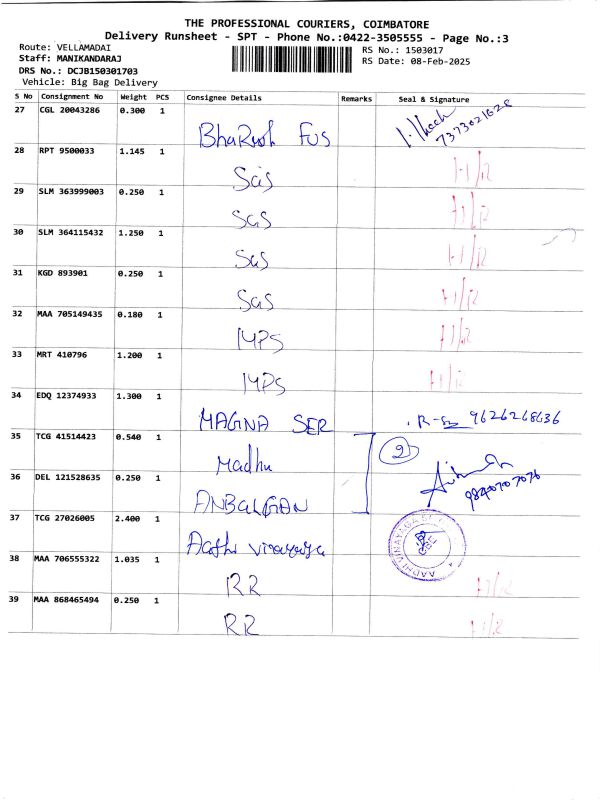 THE PROFESSIONAL COURIERS, COIMBATORE
Delivery Runsheet - SPT - Phone No.:0422-3505555 - Page No.:3
Route: VELLAMADAI
Staff: MANIKANDARAJ
DRS No.: DCJB150301703
Vehicle: Big Bag Delivery
RS No.: 1503017
RS Date: 08-Feb-2025
S No Consignment No Weight PCS Consignee Details Remarks Seal & Signature
27 CGL 20043286 0.300 1
7373021628
28 RPT 9500033 1.145 1
29 SLM 363999003 0.250 1
SGS
30 SLM 364115432 1.250 1
SGS
31 KGD 893901 0.250 1
SGS
32 MAA 705149435 0.180 1
33 MRT 410796 1.200 1
34 EDQ 12374933 1.300 1
MAGNA SER 9626268636
35 TCG 41514423 0.540 1
Madhu 2
36 DEL 121528635 0.250 1
ANBALGAN 9840707076
37 TCG 27026005 2.400 1
38 MAA 706555322 1.035 1
RR
39 MAA 868465494 0.250 1
RR